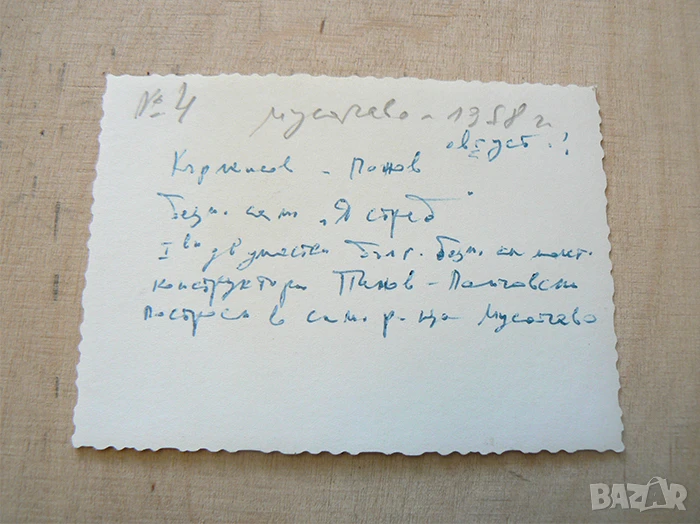 № 4 Мусачево - 1958 г.
август
Кържисов - Панов
Безм. сам. „Ястреб"
I ви двуместен бълг. безм.
конструктори Панов - Панчовски
построен в сам. р-ца Мусачево
BAZAR